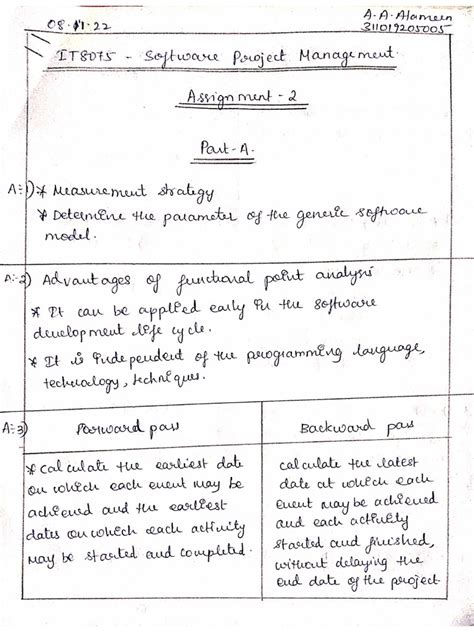 A.A. Alameen
08.11.22
311019205005
IT8075 - Software Project Management
Assignment - 2
Part-A.
A:1) * Measurement strategy
* Determine the parameter of the generic software
model.
A:-2) Advantages of functional point analysis
* It can be applied early in the software
development life cycle.
* It is independent of the programming language,
technology, techniques.
A:-3) Forward pass
* Calculate the earliest date
on which each event may be
achieved and the earliest
dates on which each activity
may be started and completed.
Backward pass
calculate the latest
date at which each
event may be achieved
and each activity
started and finished,
without delaying the
end date of the project